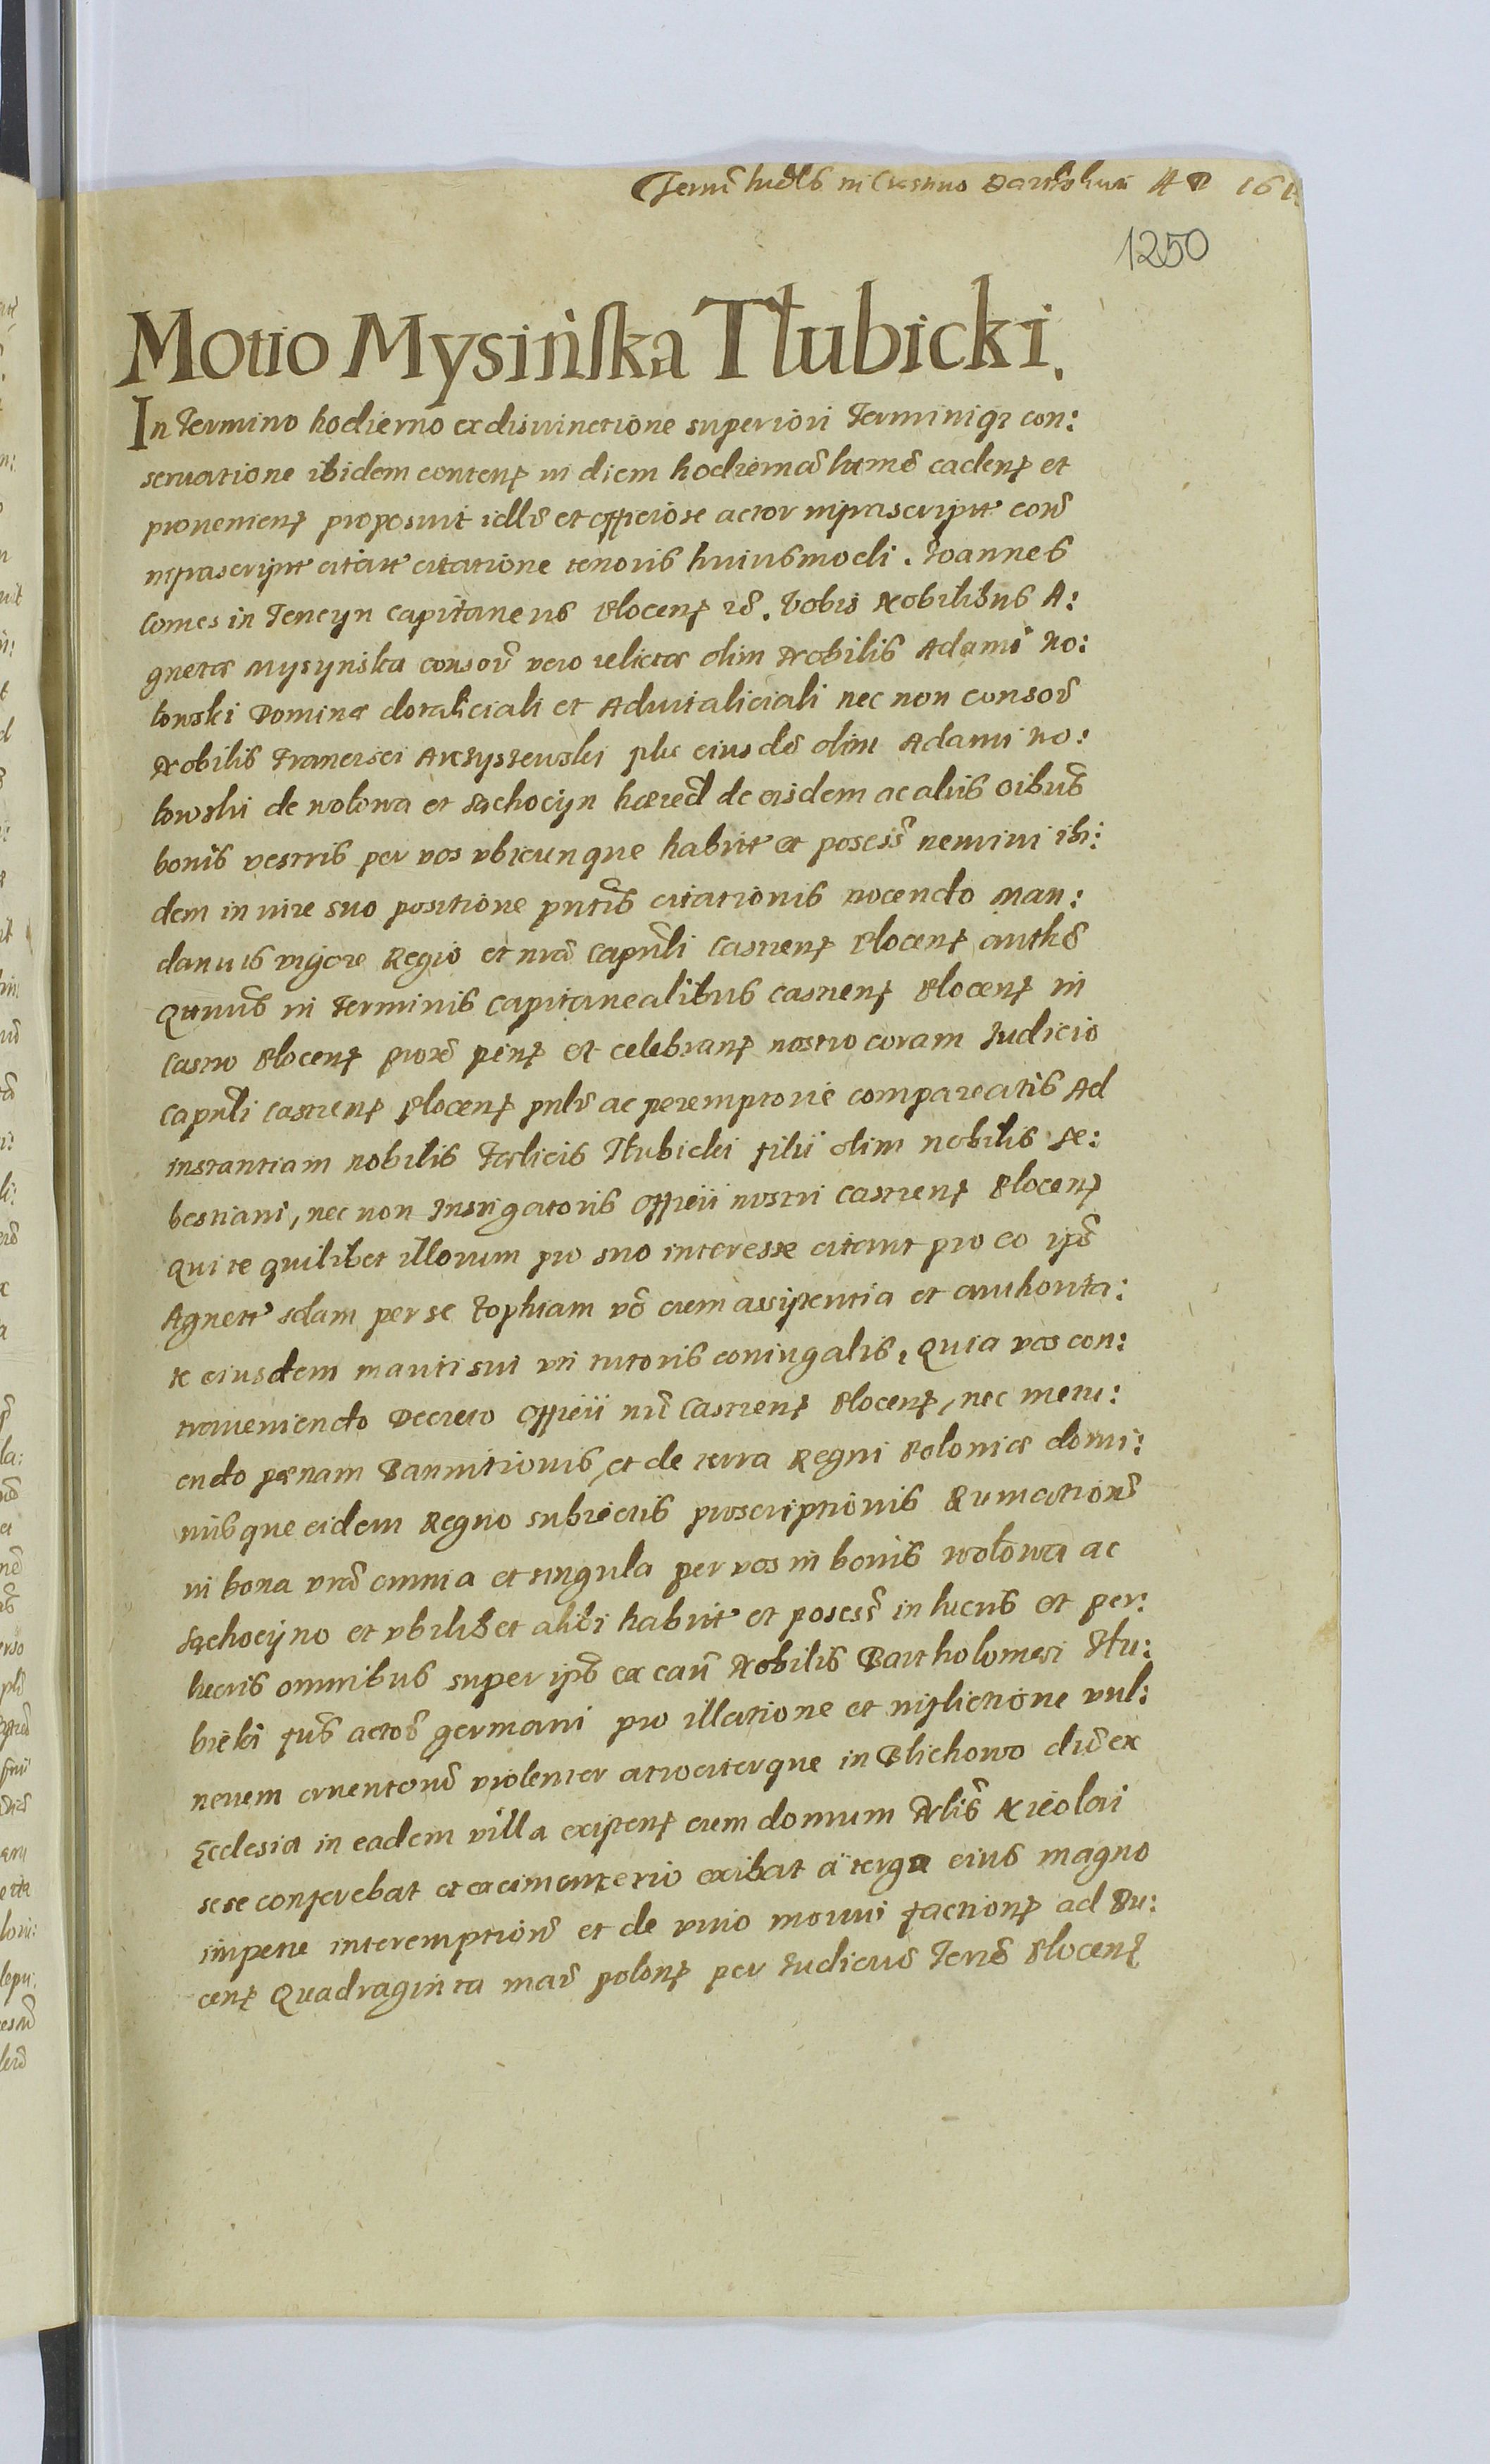 in Crastino 161
1250
Motio Mysińska Tłubicki.
In Termino hodierno ex disiunctione superiori Terminiqȝ con:
seruatione ibidem contenꝭ in diem hodiernã hũmõ cadenꝭ et
prouenienꝭ proposuit idlr̃ et officiose actor infrascript: corã
infrascript: citatꝭ citatione tenoris huiusmodi. Joannes
Comes in Tencyn Capitaneus Plocenꝭ. Vobis Nobilibus A:
gnetæ Mysynska consor̃ vero relictæ olim Nobilis Adami No:
Dominæ dotaliciali et Aduitaliciali nec non Consor̃
Nobilis Francisci eiusdẽ olim Adami No:
de et Sąchocyn hæred̃ de eisdem ac aliis oĩbus
bonis vestris per vos vbicunque habitꝭ et posess̃ nemini ibi:
dem in iure suo positione pñtis citationis nocendo Man:
damus vigore Regio et nr̃a Capnl̃i Castrenꝭ Plocenꝭ authẽ
Quatinus in Terminis Capitanealibus Castrenꝭ Plocenꝭ in
Castro Plocenꝭ et celebranꝭ nostro coram Judicio
Capnl̃i Castrenꝭ Plocenꝭ ac peremptorie compareatis Ad
instantiam nobilis Fœlicis Tłubicki filii olim nobilis Se:
bestiani, nec non Instigatoris Officii nostri Castrenꝭ Plocenꝭ
Qui te quilibet illorum pro suo interesse citant pro eo
Agnett: per se Zophiam vero cum assistentia et authorita:
te eiusdem mariti sui vti tutoris coniugalis, Quia vos con:
traueniendo Decreto Officii nr̃i Castrenꝭ Plocenꝭ, nec metu:
endo pænam Bannitionis, et de terra Regni Poloniæ domi:
niisque eidem Regno subiectis proscriptionis
in bona vr̃a omnia et singula per vos in bonis ac
Sąchocyno et vbilibet alibi habitꝭ et posess̃ in lucris et per:
lucris omnibus super ex Nobilis Bartholomæi Tłu:
bicki germani pro illatione et inflictione vul:
nerum cruentorũ violenter atrociterque in Blichowo dũ ex
Ecclesia in eadem villa existenꝭ Nicolai
sese conferebat et ex cimenterio exibat à tergo eius magno
impetu interemptionẽ et de viuo mortui factionꝭ ad Du:
cenꝭ Quadraginta mar̃ polonꝭ per Judiciũ Terrẽ Plocenꝭ